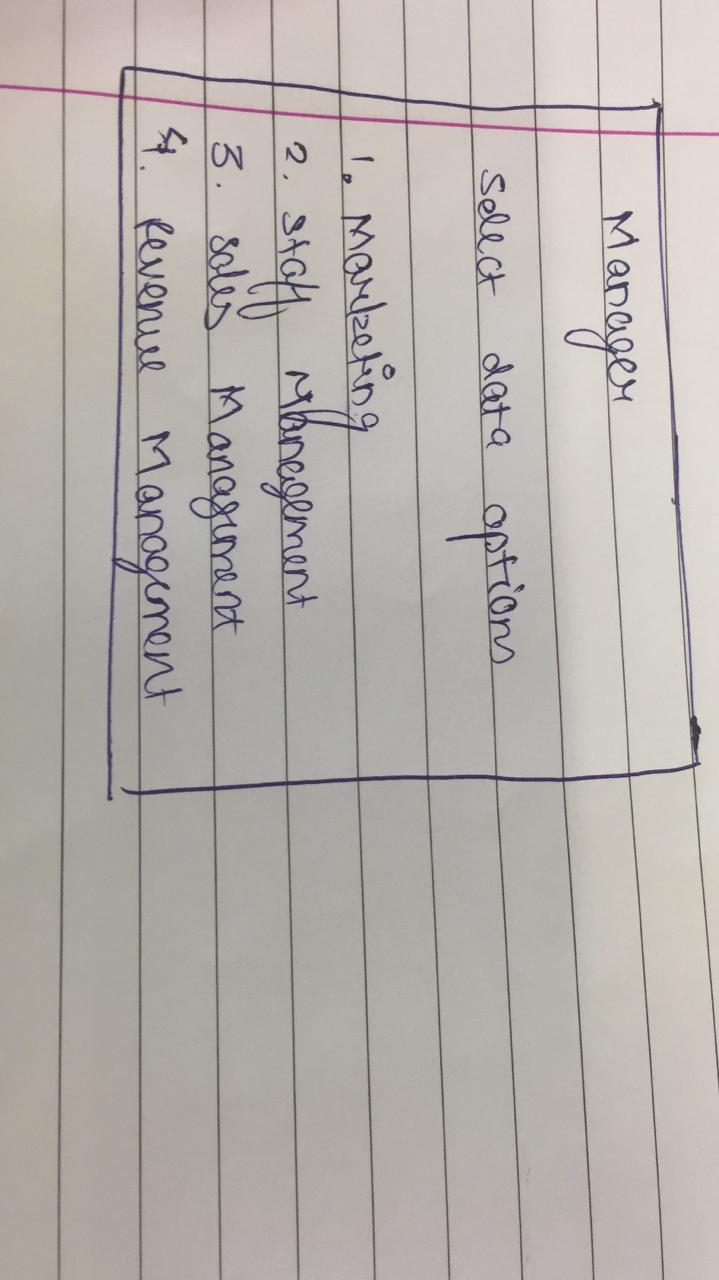 Manager
Select data options
1. Marketing
2. Staff Management
3. Sales Management
4. Revenue Management